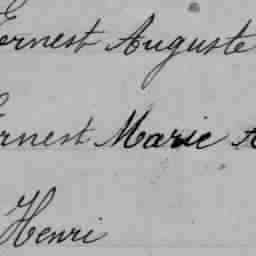 Ernest Auguste
Ernest Marie
Henri